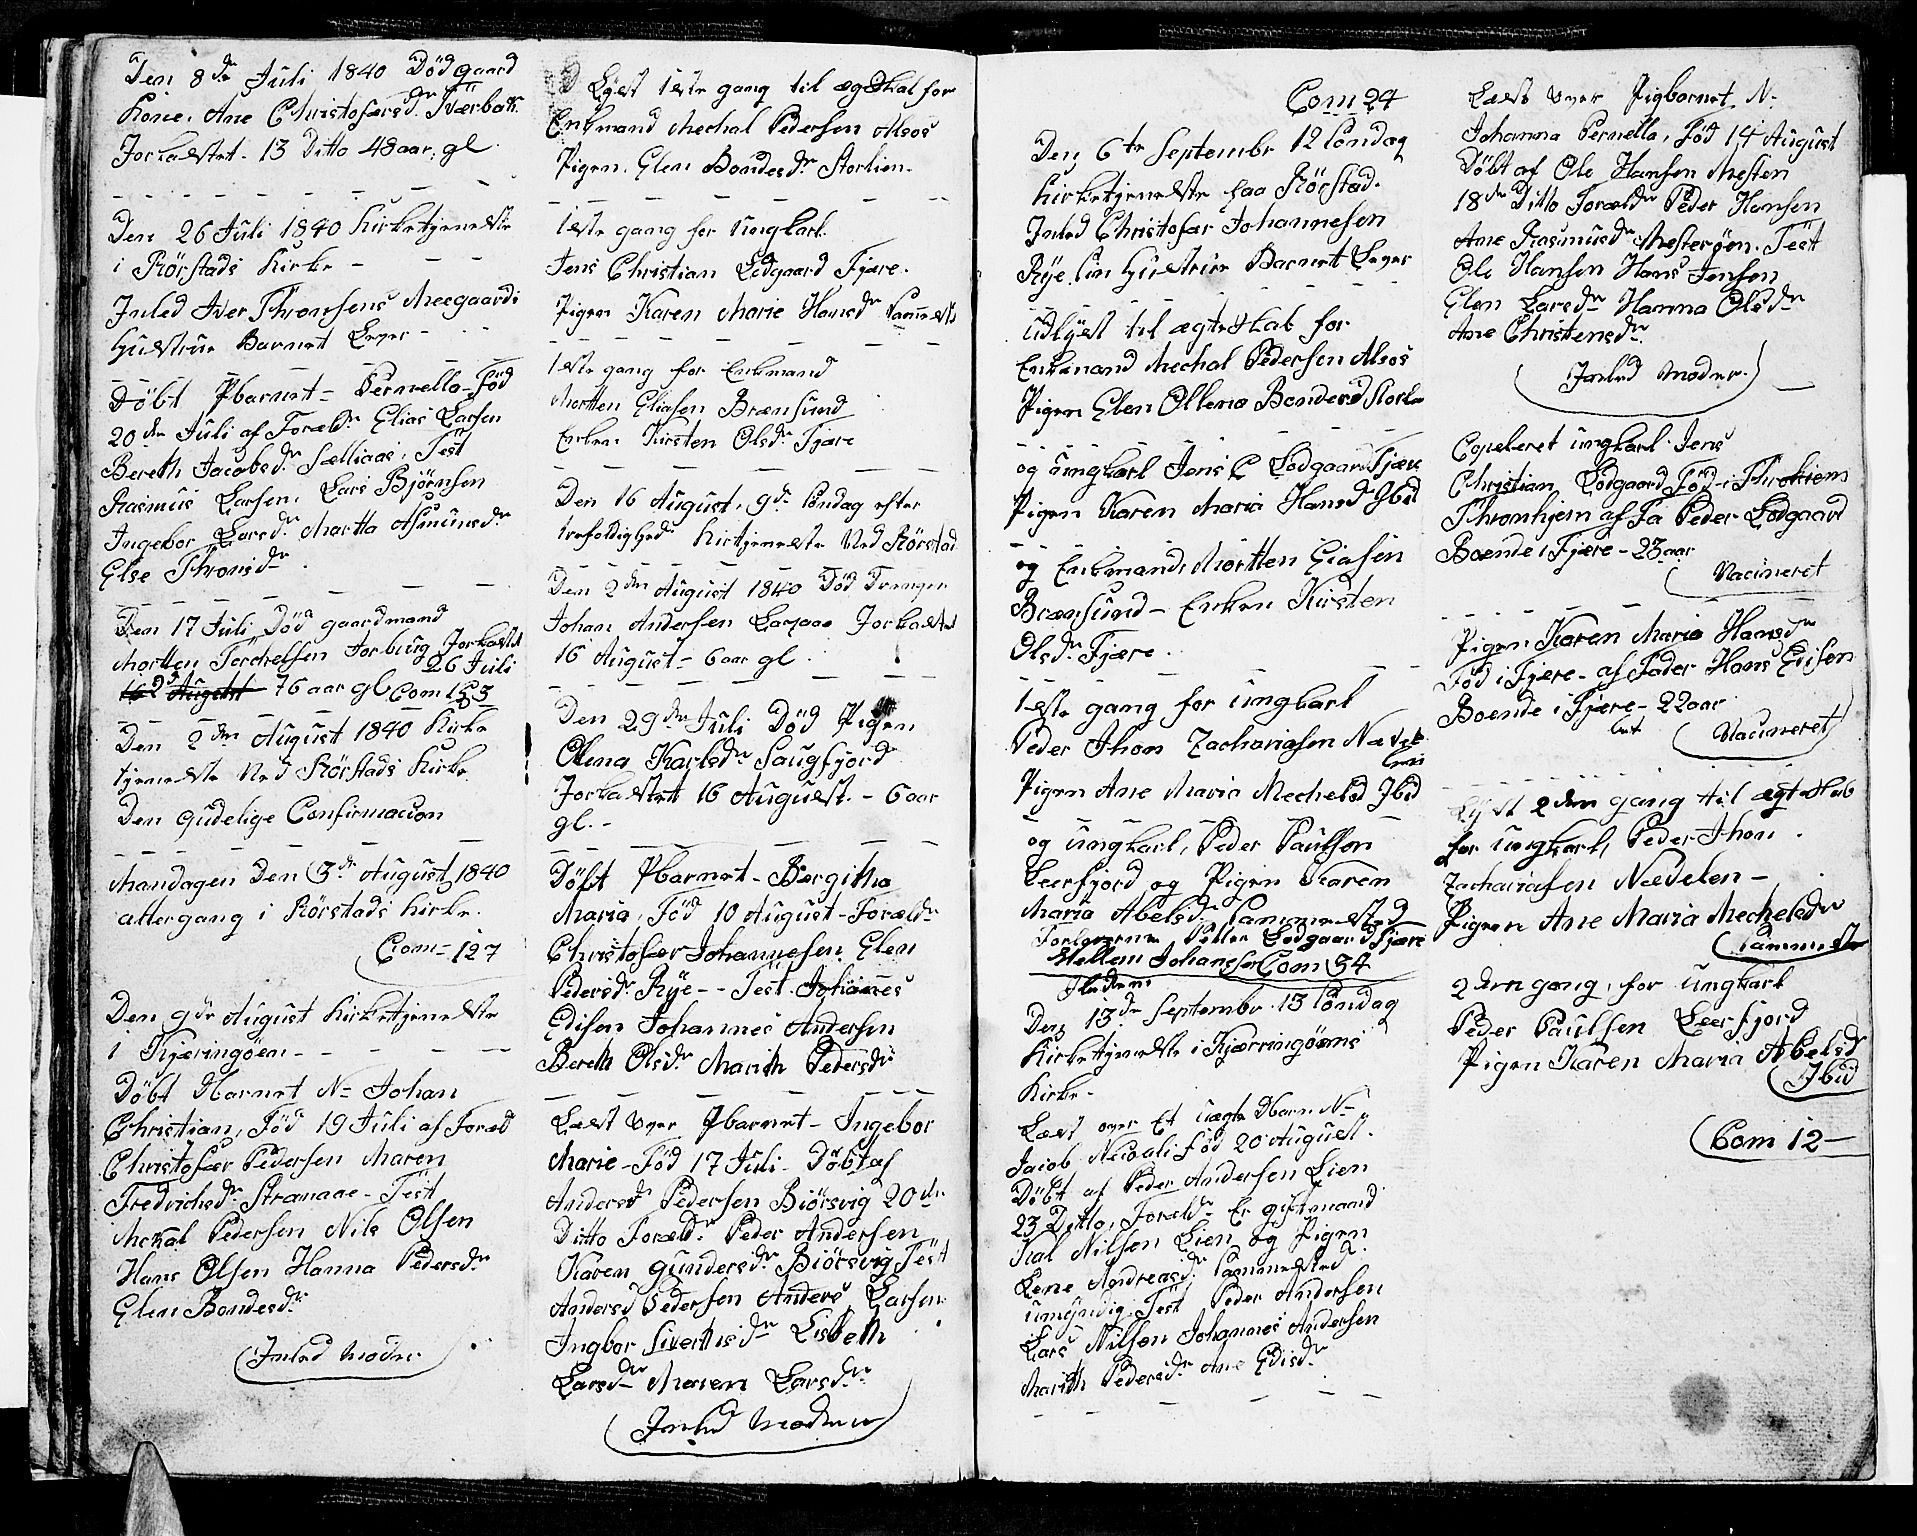 Den 8de Juli 1840 Död gaard
Kone. Ane Christofersdr Tværbak.
Jorkastet. 13 Ditto 48 aar. gl.
Den 26 Juli 1840 Kirketjeneste
i Rörstads Kirke
Inled Iver Thronsens Meegaards
Hustrue Barnet Lever
Döbt Pbarnet - Pernella - Föd
20de Juli af Foreldr Elias Larsen
Bereth Jacobsdr Sælliaas, Test
Rasmus Larsen. Lars Björnsen
Ingebor Larsdr Martha Asmunsdr
Else Thronsdr
Den 17 Juli Död gaardmand
Morten Torchelsen Forburg Jorkastet
26 Juli
76 aar gl Com 153
Den 2den August 1840 Kirke
tjeneste Ved Rörstads Kirke
Den gudelige Confirmacion
Mandagen Den 3de August 1840
altergang i Rörstads Kirke.
Com = 127
Den 9de August Kirketjeneste
i Kjæringöen
Döbt Dbarnet N= Johan
Christian, Föd 19 Juli af Foræld
Christofær Pedersen Maren
Fredrichsdr Straaae - Test
Mekal Pedersen Nils Olsen
Hans Olsen Hanna Pedersdr
Elen Bondesdr
Inled Moder
Lyst 1ste gang til ægteskab for
Enkmand Mechal Pedersen Alsos
Pigen. Elen Bondesdr Storlien.
1ste gang for Ungkarl.
Jens Christian Lodgaard Fjære.
Pigen Karen Marie Hansdr Sammests
1ste gang for Enkmand
Mortten Eliasen Brænsund
Enken Kirsten Olsdr Fjære
Den 16 August, 9de Söndag efter
trefoldighed Kirtjeneste Ved Rörstad
Den 2den August 1840 Död Drengen
Johan Andersen Jorkastet
16 August - 6 aar gl
Den 29de Juli Död Pigen
Olena Karlsdr Saugfjord
Jorkastet 16 August. - 6 aar
gl. -
Döbt Pbarnet - Bergitha
Maria, Föd 10 August - Foreldr
Christofær Johannesen Elen
Pedersdr Rÿe - - Test. Johannes
Edisen Johannes Andersen
Bereth Olsdr Marith Pedersdr
Læst over Pbarnet - Ingebor
Marie - Föd 17 Juli - Döbt af
Andersdr Pedersen Biörsvig 20de
Ditto Foreldr Peder Andersen
Karen Gundersdr Biörsvig Test
Anders Pedersen Anders Larsen
Ingbor Siverthsdr Lisbeth
Larsdr Maren Larsdr
Inled Moderen
Com 24
Den 6te Septembr 12 Söndag
Kirketjeneste paa Rörstad.
Inled Christofær Johannesen
Rÿe. sin Hustrue Barnet Lever
Udlyst til ægteskab for
Enkemand Mechal Pedersen Alsos
Pigen Elen Ollena Bondesd Storl
og ungkarl Jens C Lodgaard Fjære
Pigen Karen Maria Hansd Ibid
og Enkemand, Mortten Eiasen
Brænsund - Enken Kirsten
Olsdr Fjære.
1ste gang for ungkarl
Peder Thom Zachariasen Nævel
Pigen Ane Maria Mechelsd Ibid
og ungkarl, Peder Paulsen
Leerfjord og Pigen Karen
Maria Abelsdr Sammested
Forloverne Petter Lodgaard Fjære
Hellem Johansen Com 34
Den 13de Septembr 13 Söndag
Kirketjeneste i Kjærringöens
Kirke.
Læst over Et uægte Dbarn N=
Jacob Nicolai föd 20 August.
Döbt af Peder Andersen Lien
23 Ditto, Foreldr Er giftmand
Kal Nilsen Lien og Pigen
Lene Andreasdr Sammested.
umyndig, Test Peder Andersen
Lars Nilsen Johannes Andersen
Marith Pedersdr Ane Edisdr
Læst over Pigbarnet N-
Johanna Pernella, Föd 14 August
Döbt af Ole Hansen Mesten
18de Ditto Foreldr Peder Hansen
Ane Rasmusdr Mesteröen. Test
Ole Hansen Hans Jensen
Elen Larsdr Hanna Olsdr
Ane Christensdr
Inled Moder.
Copeleret ungkarl. Jens
Christian Lodgaard Föd i
Thronhjem af Fa Peder Lodgaard
Boende i Fjære - 23 aar
Vacineret
Pigen Karen Maria Hansdr
Föd i Fjære - af Fader Hans Edisen
Boende i Fjære - 22 aar
Vacineret
Lyst 2den gang til ægteskab
for ungkarl, Peder Thom
Zachariasen Nædelen -
Pigen Ane Maria Mechelsdr
Sammeste
2den gang, for ungkarl
Peder Paulsen Leerfjord
Pigen Karen Maria Abelsd
Ibid
Com 12 -